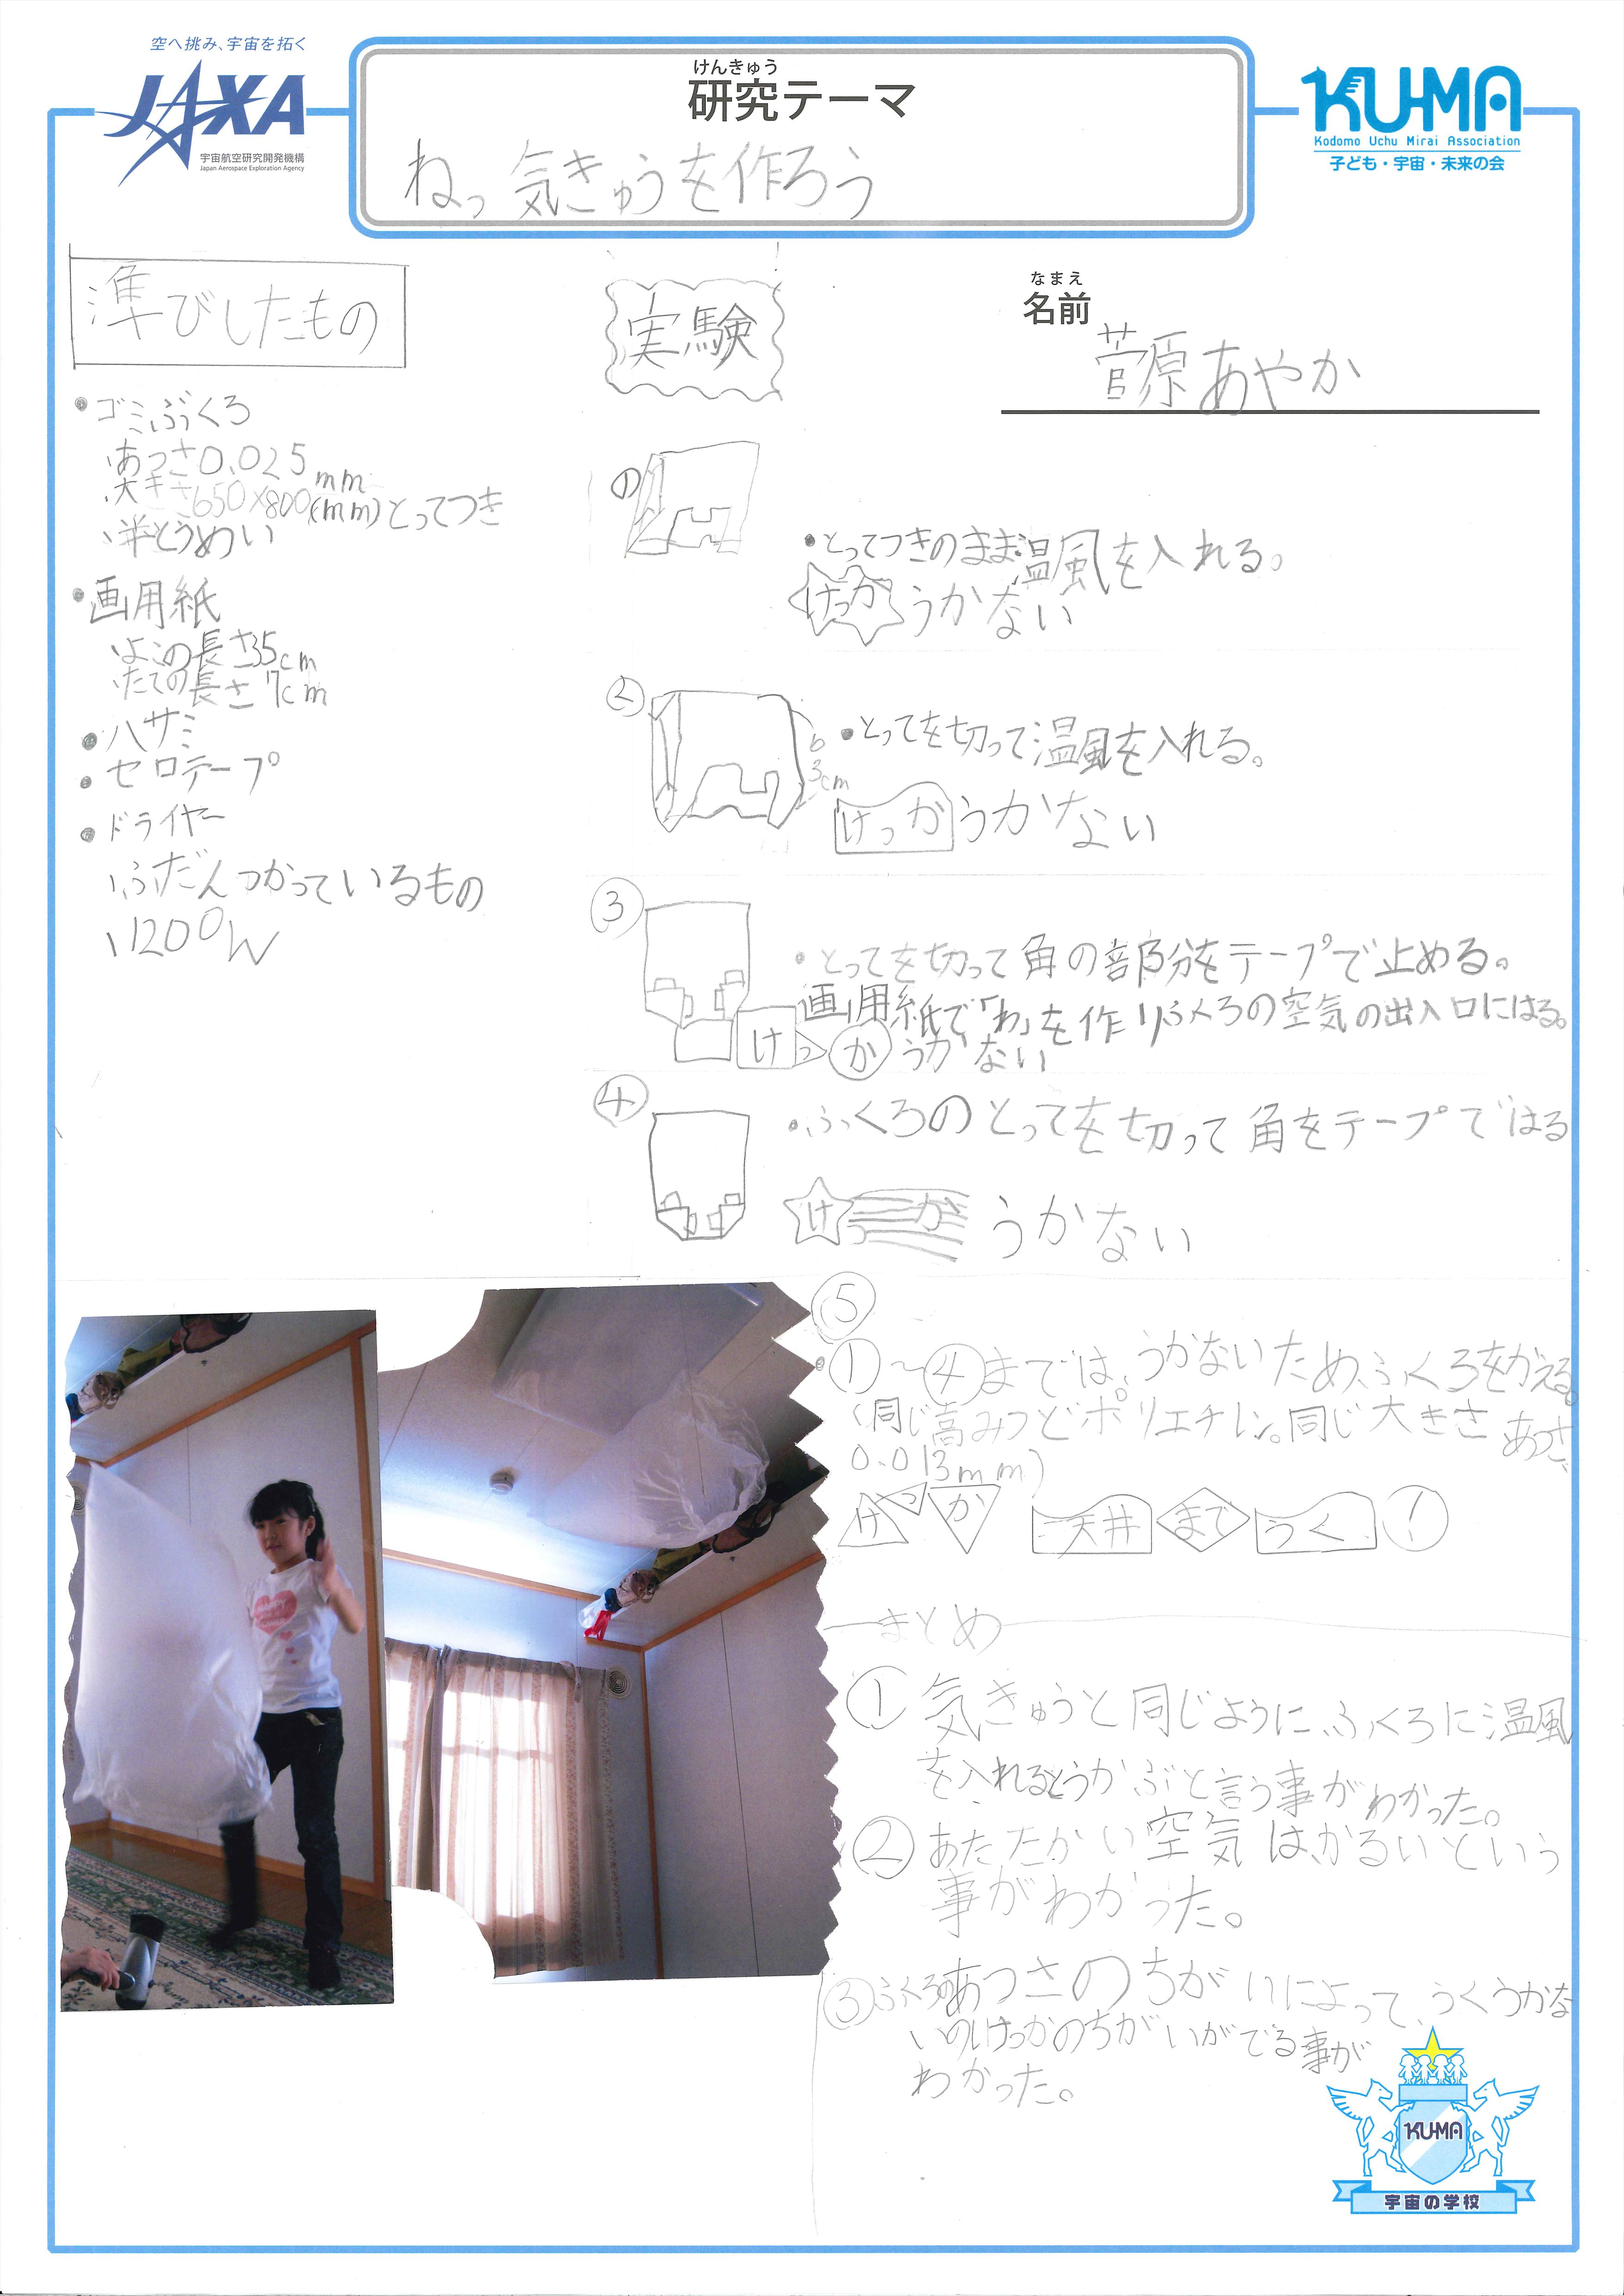 空へ挑み、宇宙を拓く
JAXA
宇宙航空研究開発機構
Japan Aerospace Exploration Agency
けんきゅう
研究テーマ
ねっ気きゅうを作ろう
KU-MA
Kodomo Uchu Mirai Association
子ども・宇宙・未来の会
なまえ
名前
菅原あやか
準びしたもの
・ゴミぶくろ
、あつさ0.025mm
、大きさ650×800(mm)とってつき
、半とうめい
・画用紙
、よこの長さ35cm
、たての長さ7cm
・ハサミ
・セロテープ
・ドライヤー
、ふだんつかっているもの
、1200W
実験
①
・とってつきのまま温風を入れる。
けっか うかない
②
・とってを切って温風を入れる。
3cm
けっか うかない
③
・とってを切って角の部分をテープで止める。
画用紙で「わ」を作りふくろの空気の出入口にはる。
けっか うかない
④
・ふくろのとってを切って角をテープではる
けっか うかない
⑤
・①～④までは、うかないため、ふくろをかえる。
(同じ高みつどポリエチレン。同じ大きさ あつさ、
0.013mm)
けっか 天井までうく!
まとめ
① 気きゅうと同じように、ふくろに温風
を入れるとうかぶと言う事がわかった。
② あたたかい空気は、かるいという
事がわかった。
③ ふくろのあつさのちがいによって、うくうかな
いのけっかのちがいがでる事が
わかった。
KU-MA
宇宙の学校